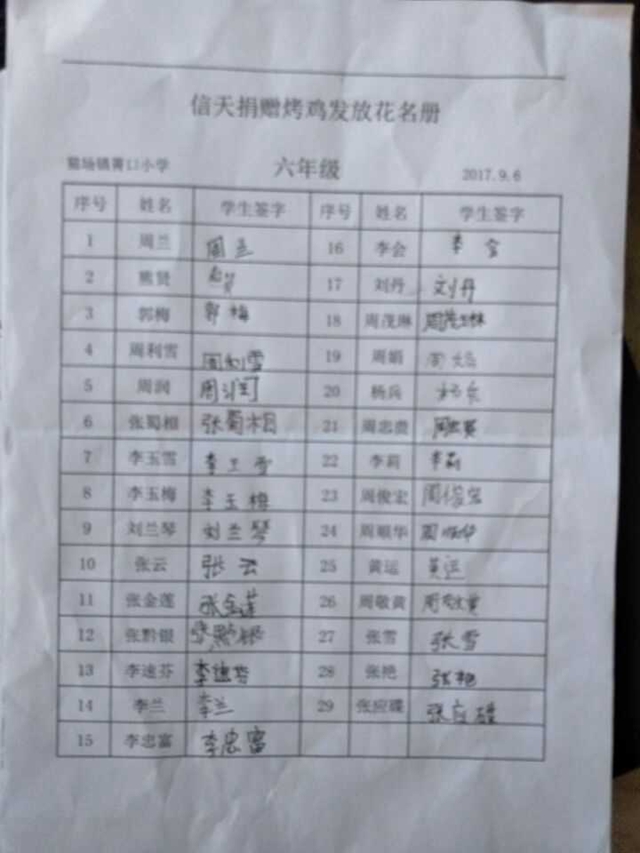 信天捐赠烤鸡发放花名册
猫场镇箐口小学 六年级 2017.9.6
序号 姓名 学生签字 序号 姓名 学生签字
1 周兰 周兰 16 李会 李会
2 熊贤 17 刘丹 刘丹
3 郭梅 郭梅 18 周茂琳 周茂琳
4 周利雪 周利雪 19 周娟
5 周润 周润 20 杨兵 杨兵
6 张蜀相 张蜀相 21 周忠贵
7 李玉雪 李玉雪 22 李莉 李莉
8 李玉梅 李玉梅 23 周俊宏 周俊宏
9 刘兰琴 刘兰琴 24 周顺华 周顺华
10 张云 张云 25 黄运 黄运
11 张金莲 张金莲 26 周敬黄
12 张黔银 张黔银 27 张雪 张雪
13 李速芬 28 张艳 张艳
14 李兰 李兰 29 张应碟 张应碟
15 李忠富 李忠富